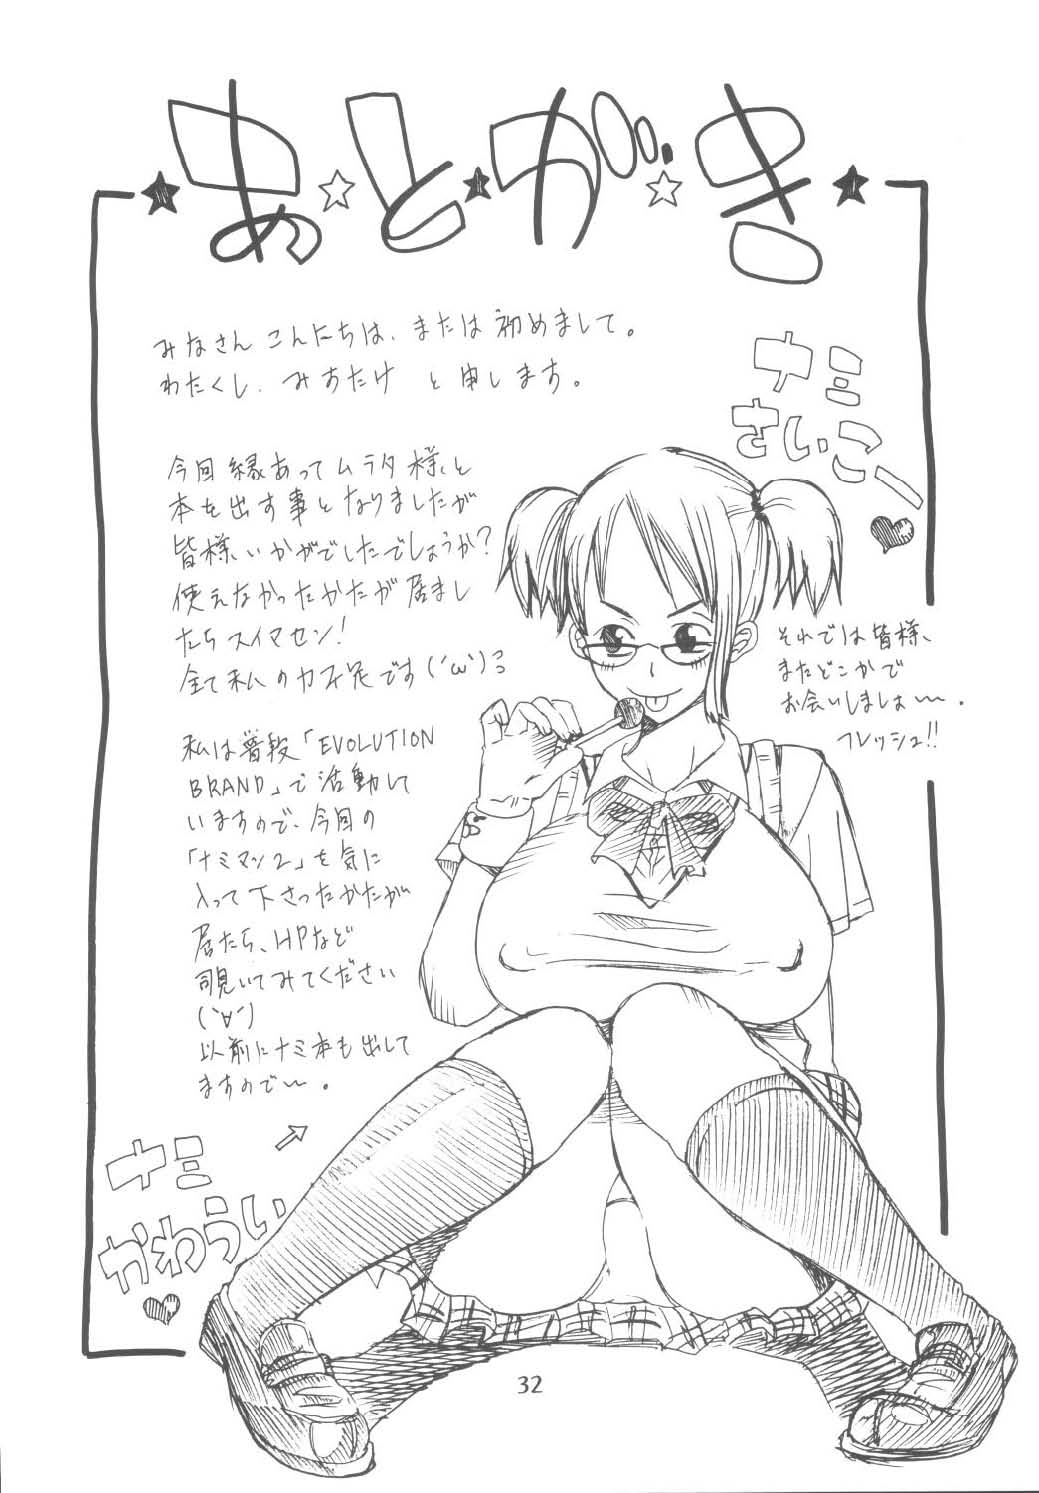 あとがき
みなさん こんにちは、または初めまして。
わたくし、みすたけ と申します。
今回縁あってムラタ様と
本を出す事となりましたが
皆様いかがでしたでしょうか?
使えなかったかたが居まし
たらスイマセン!
全て私の力不足です(´ω`)
私は普段「EVOLUTION
BRAND」で活動して
いますので、今回の
「ナミマン2」を気に
入って下さったかたが
居たら、HPなど
覗いてみてください
(`∀´)
以前にナミ本も出して
ますので〜。
ナミ
さいこー
それでは皆様、
またどこかで
お会いしましょ〜〜。
フレッシュ!!
ナミ
かわうい
32